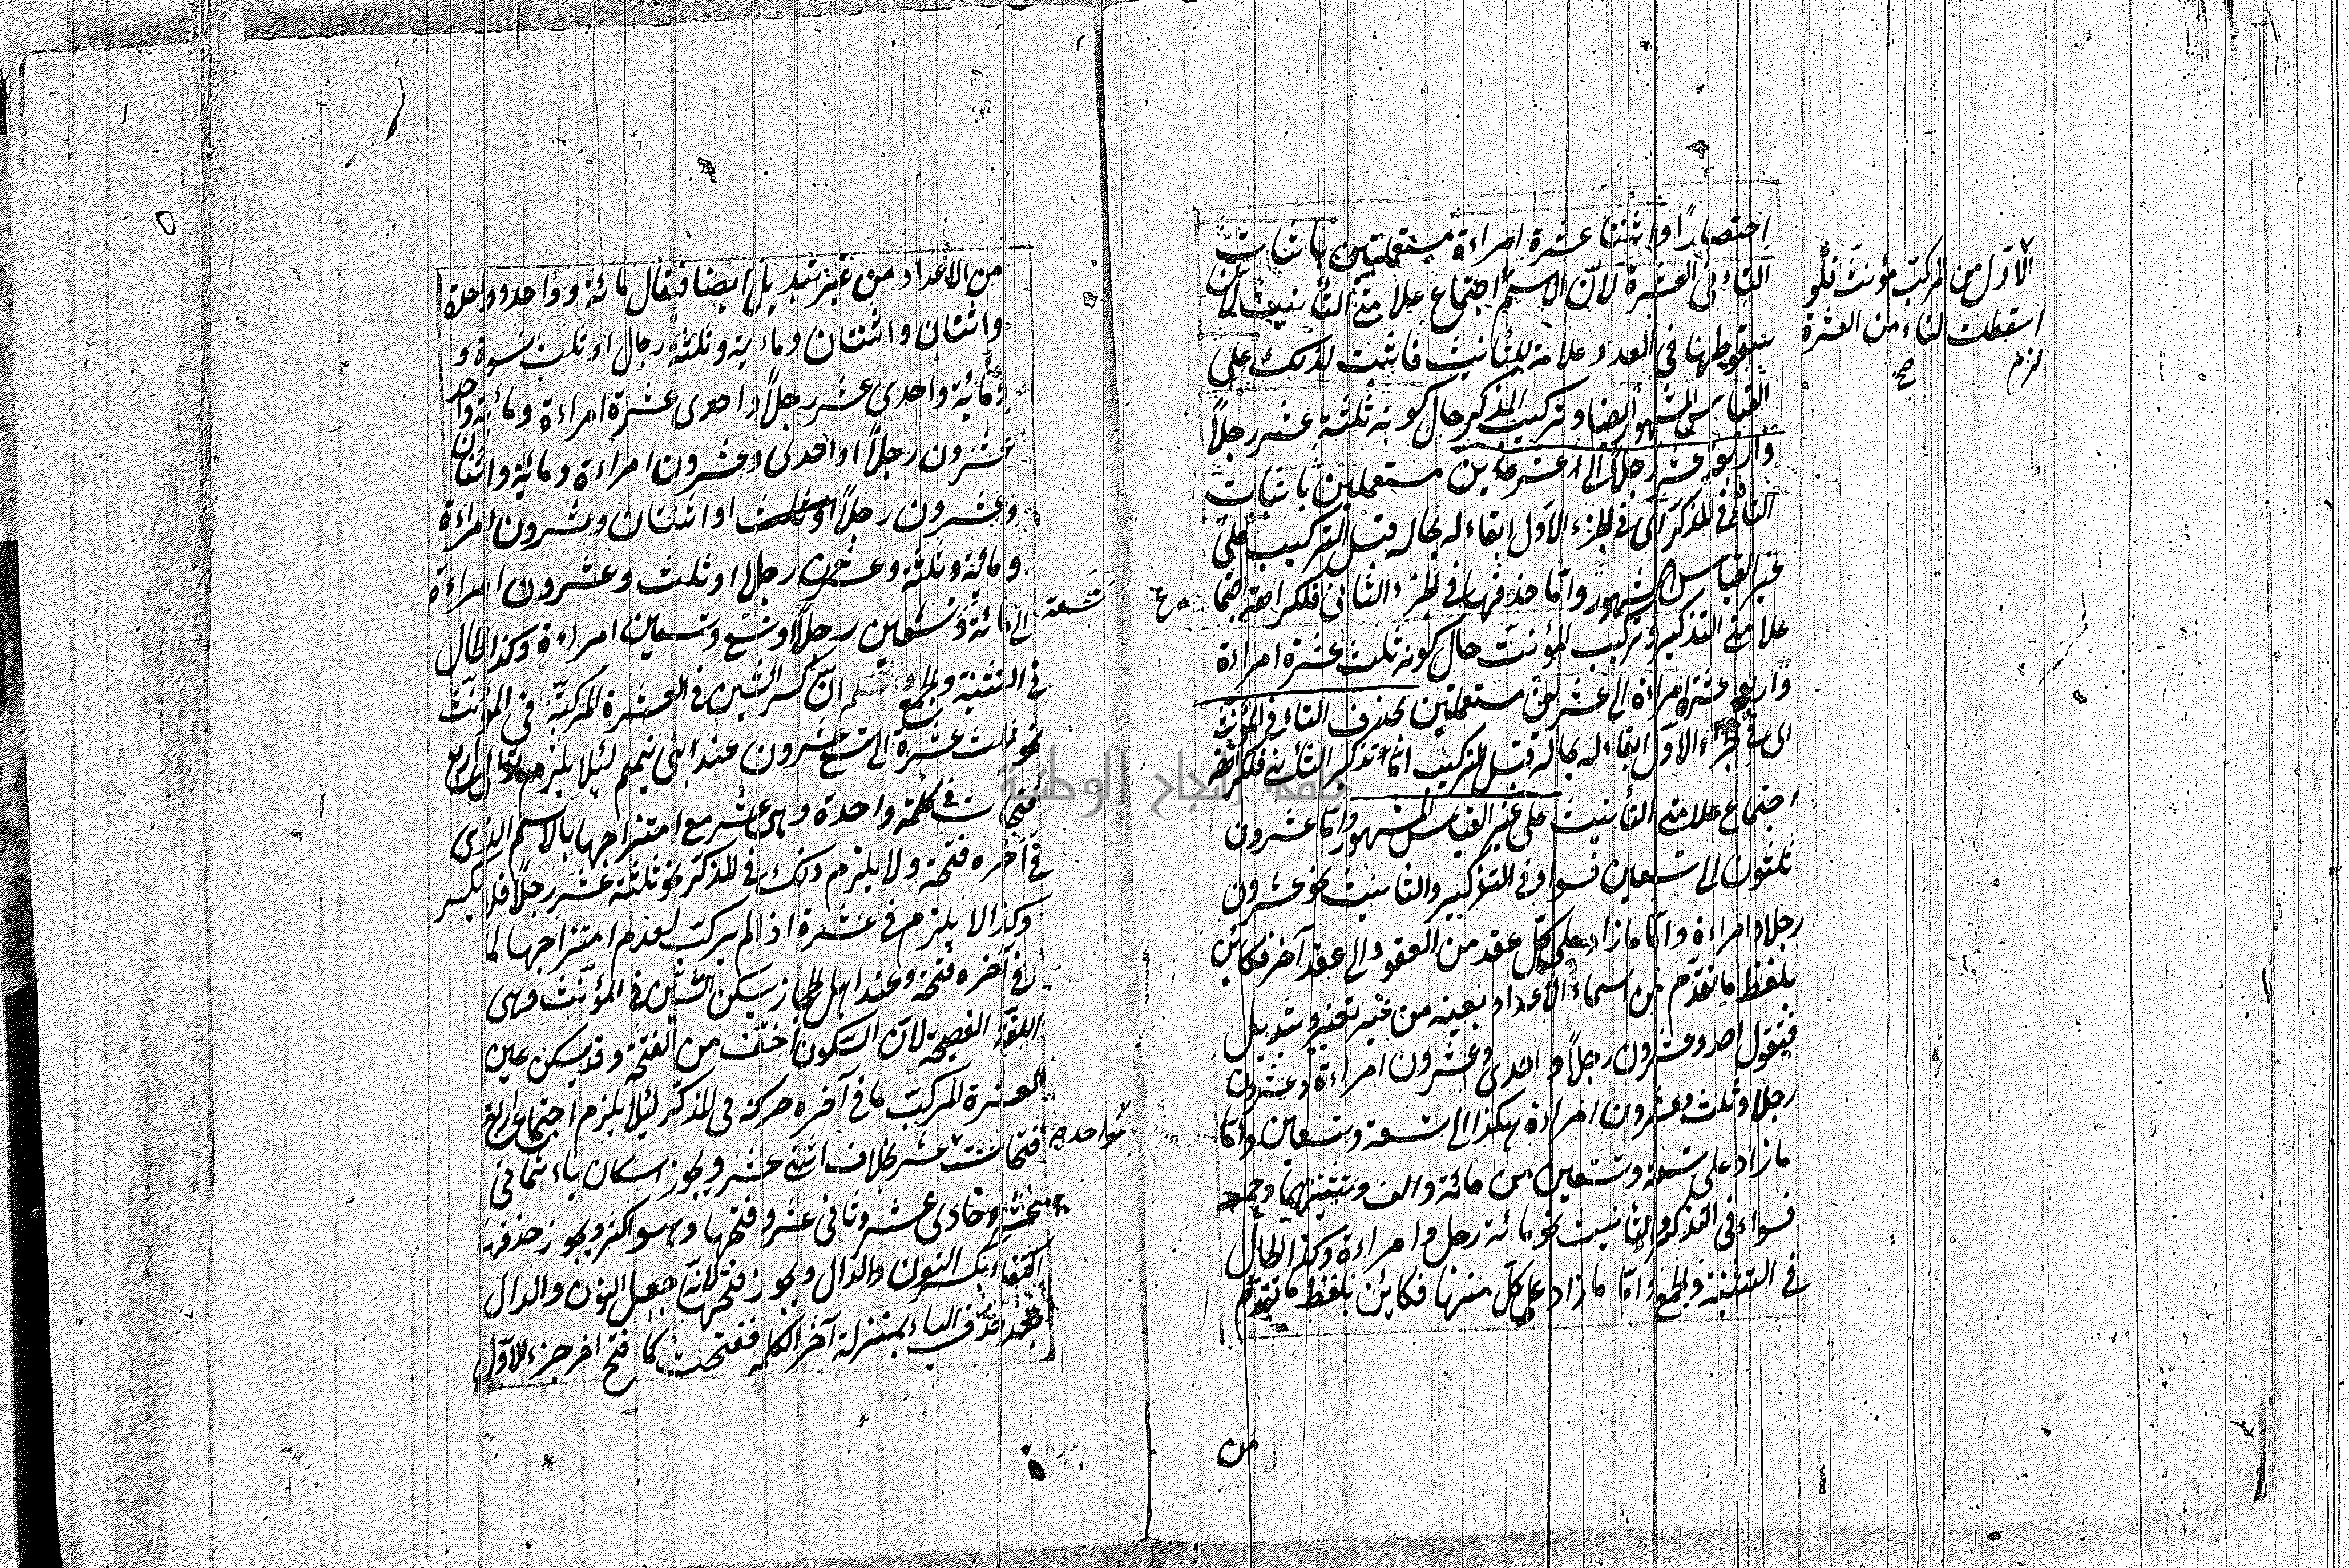 اختصارا واثنتا عشرة امراءة مستعملتين باثبات
التاء فى العشرة لان الاسم اجتماع علامتى التأنيث لان
سقوطها فى العدد علامة للتأنيث فاثبت لذلك على
القياس المشهور ايضا وتركيب المذكر حال كونه ثلثة عشر رجلاً
واربعة عشر رجلا الى عشرين مستعملين باثبات
التاء فى المذكر اى فى الجزء الاول ابقاء له بحاله قبل التركيب على
غير القياس المشهور واما حذفها فى الجزء الثانى فلكراهة اجتماع
علامتى التذكير وتركيب المؤنث حال كونه ثلث عشرة امراءة
واربع عشرة امراءة الى عشرين مستعملتين بحذف التاء فى المؤنث
اى فى الجزء الاول ابقاء له بحاله قبل التركيب
اجتماع علامتى التأنيث على غير القياس المشهور واما عشرون
ثلثون الى تسعين فسواء فى التذكير والتانيث نحو عشرون
رجلا وامراءة واما ما زاد على كل عقد من العقود الى عقد آخر فكائن
بلفظ ما تقدم من اسماء الاعداد بعينه من غير تغيير وتبديل
فيتقول احد وعشرون رجلاً واحدى وعشرون امراءة وعشرون
رجلا وثلث وعشرون امراءة هكذا الى تسعة وتسعين واما
ما زاد على تسعة وتسعين من مائة والف وتثنيتهما وجمعه
فسواء فى التذكير والتانيث نحو مائة رجل وامراءة وكذا الحال
فى التثنية والجمع واما ما زاد على كل منها فكائن بلفظ ما تقدم
من
الاول من المركب مؤنث فلو
اسقطت التاء من العشرة
لزم
صح
من الاعداد من غير تبديل ايضا فيقال مائة وواحد وواحدة
واثنان واثنتان ومائة وثلثة رجال او ثلث نسوة و
ومائة واحدى عشر رجلاً واحدى عشرة امراءة ومائة واحد
عشرون رجلاً او احدى وعشرون امراءة ومائة واثنان
وعشرون رجلاً او اثنتان وعشرون امراءة
ومائة وثلثة وعشرون رجلا او ثلث وعشرون امراءة
الى مائة وتسعين رجلاً او تسع وتسعين امراءة وكذا الحال
فى التثنية والجمع ان كسر الشين فى العشرة المركبة فى المؤنث
نحو ثلث عشرة الى تسع عشرون عند ابنى تميم لئلا يلزم اربع
فتحات فى كلمة واحدة وهى عشر مع امتزاجها بالاسم الذى
فى آخره فتحة ولا يلزم ذلك فى المذكر نحو ثلثة عشر رجلاً فلا يكسر
وكذا لا يلزم فى عشرة اذا لم يركب لعدم امتزاجها لما
فى آخره فتحة وعند اهل الحجاز يسكن الشين فى المؤنث وهى
اللغة الفصيحة لان السكون اخف من الفتحة وقد يسكن عين
العشرة المركب ما فى آخره حركة فى المذكر لئلا يلزم اجتماع اربع
فتحات عشر بخلاف اثنى عشر ويجوز اسكان ياء ثمانى
عشر وحادى عشر وثانى عشر وفتحها وهو اكثر ويجوز حذفها
النون والدال ويجوز فتحها كانه جعل النون والدال
بعد حذف الياء بمنزلة آخر الكلمة ففتحت كما فتح آخر جزء الاول
تسعة
واحدة